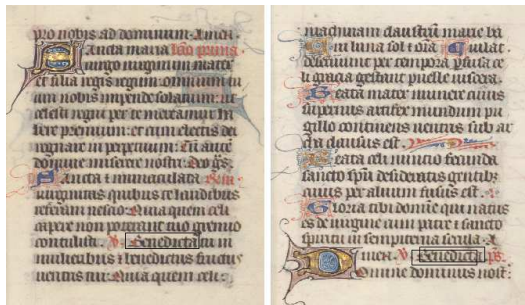 pro nobis ad dominum. Amen.
Sancta maria
virgo virginum mater
et filia regis regum omnium
um nobis impende solatium: ut
celestis regni per te mereamur
bere premium: et cum electis dei
regnare in perpetuum. Tu autem
domine miserere nostri. Deo gras.
Sancta et inmaculata
virginitas quibus te laudibus
referam nescio. Quia quem celi
capere non poterant tuo gremio
contulisti. V. Benedicta tu in
mulieribus et benedictus fructus
ventris tui. Quia quem celi.
machinam claustrum marie ba
Cui luna sol et oia
deserviunt per tempora perfusa ce
li gracia gestant puelle viscera.
Beata mater munere cuius
supernus artifex mundum pu
gillo continens ventris sub ar
cha clausus est.
Beata celi nuncio fecunda
sancto spiritu desideratus gentibus
cuius per alvum fusus est.
Gloria tibi domine qui natus
es de virgine cum patre et sancto
spiritu in sempiterna secula. A
men. Benedicta ps.
Domine dominus nost: